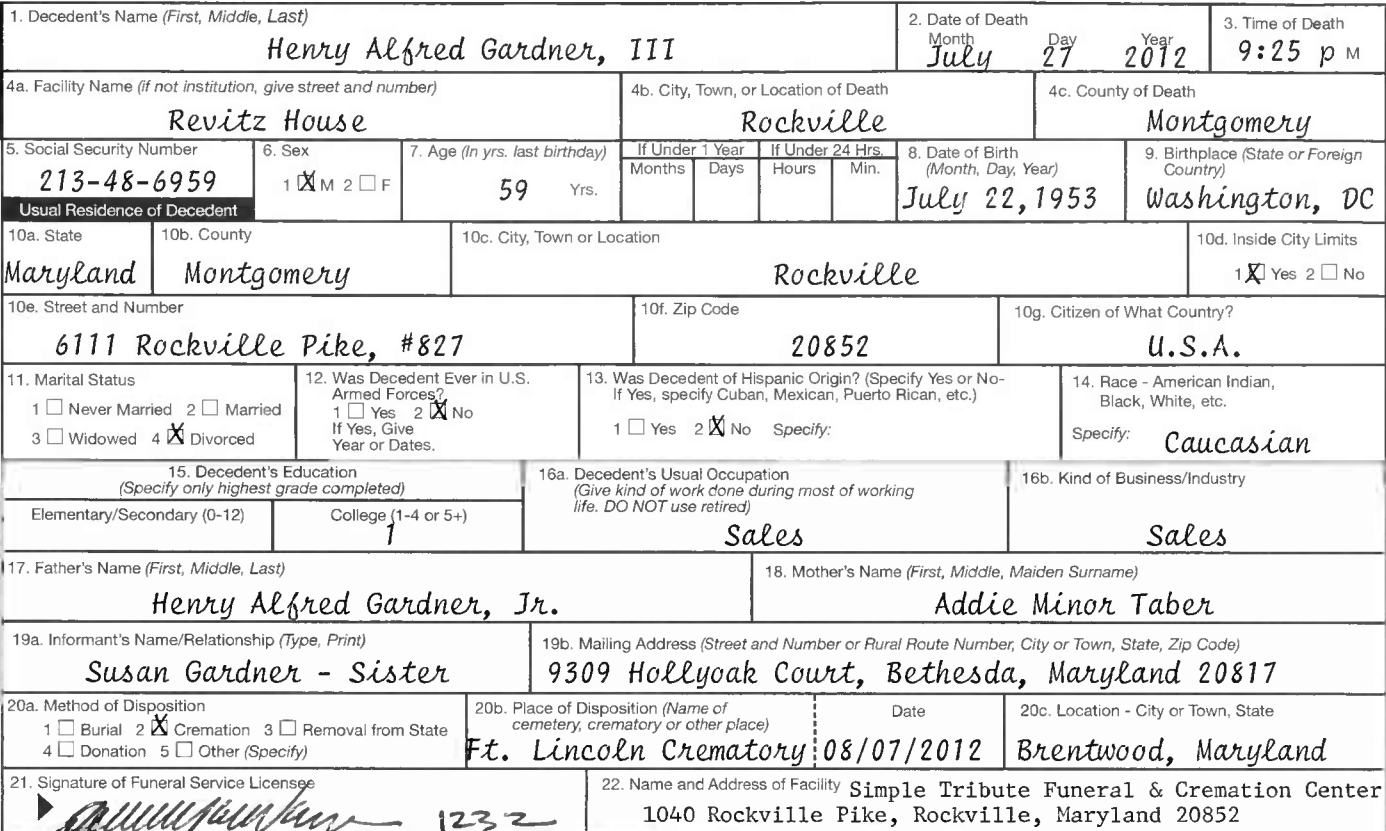 1. Decedent's Name (First, Middle, Last)
Henry Alfred Gardner, III
2. Date of Death
Month Day Year
July 27 2012
3. Time of Death
9:25 p M
4a. Facility Name (if not institution, give street and number)
Revitz House
4b. City, Town, or Location of Death
Rockville
4c. County of Death
Montgomery
5. Social Security Number
213-48-6959
6. Sex
1 X M 2 ☐ F
7. Age (In yrs. last birthday)
59 Yrs.
If Under 1 Year
Months Days
If Under 24 Hrs.
Hours Min.
8. Date of Birth
(Month, Day, Year)
July 22, 1953
9. Birthplace (State or Foreign
Country)
Washington, DC
Usual Residence of Decedent
10a. State
Maryland
10b. County
Montgomery
10c. City, Town or Location
Rockville
10d. Inside City Limits
1 X Yes 2 ☐ No
10e. Street and Number
6111 Rockville Pike, #827
10f. Zip Code
20852
10g. Citizen of What Country?
U.S.A.
11. Marital Status
1 ☐ Never Married 2 ☐ Married
3 ☐ Widowed 4 X Divorced
12. Was Decedent Ever in U.S.
Armed Forces?
1 ☐ Yes 2 X No
If Yes, Give
Year or Dates.
13. Was Decedent of Hispanic Origin? (Specify Yes or No-
If Yes, specify Cuban, Mexican, Puerto Rican, etc.)
1 ☐ Yes 2 X No Specify:
14. Race - American Indian,
Black, White, etc.
Specify: Caucasian
15. Decedent's Education
(Specify only highest grade completed)
Elementary/Secondary (0-12)
College (1-4 or 5+)
1
16a. Decedent's Usual Occupation
(Give kind of work done during most of working
life. DO NOT use retired)
Sales
16b. Kind of Business/Industry
Sales
17. Father's Name (First, Middle, Last)
Henry Alfred Gardner, Jr.
18. Mother's Name (First, Middle, Maiden Surname)
Addie Minor Taber
19a. Informant's Name/Relationship (Type, Print)
Susan Gardner - Sister
19b. Mailing Address (Street and Number or Rural Route Number, City or Town, State, Zip Code)
9309 Hollyoak Court, Bethesda, Maryland 20817
20a. Method of Disposition
1 ☐ Burial 2 X Cremation 3 ☐ Removal from State
4 ☐ Donation 5 ☐ Other (Specify)
20b. Place of Disposition (Name of
cemetery, crematory or other place)
Ft. Lincoln Crematory
Date
08/07/2012
20c. Location - City or Town, State
Brentwood, Maryland
21. Signature of Funeral Service Licensee
1232
22. Name and Address of Facility Simple Tribute Funeral & Cremation Center
1040 Rockville Pike, Rockville, Maryland 20852